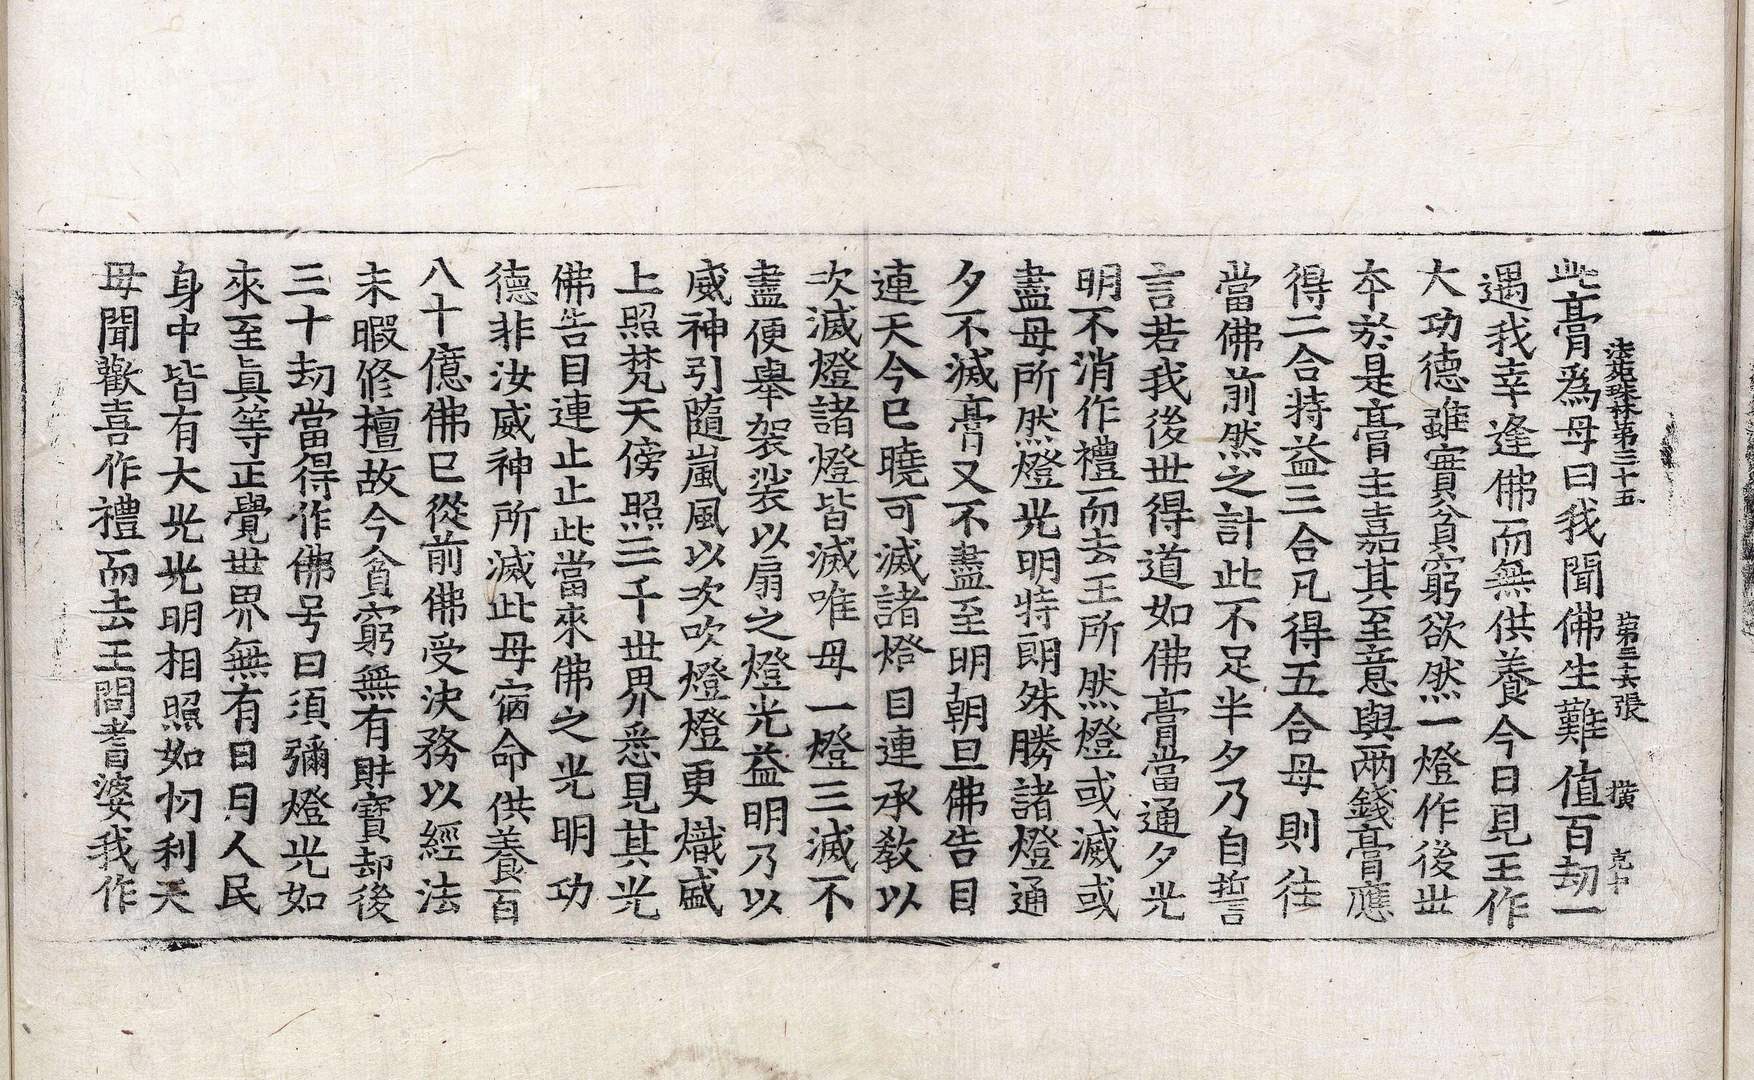 法苑珠林第三十五 第二十六張 橫
此膏爲母曰我聞佛生難值百劫一
遇我幸逢佛而無供養今日見王作
大功德雖實貧窮欲然一燈作後世
夲於是膏主嘉其至意與兩錢膏應
得二合特益三合凡得五合母則往
當佛前然之計此不足半夕乃自誓
言若我後世得道如佛膏當通夕光
明不消作禮而去王所然燈或滅或
盡母所然燈光明特朗殊勝諸燈通
夕不滅膏又不盡至明朝旦佛告目
連天今已曉可滅諸燈目連承敎以
次滅燈諸燈皆滅唯母一燈三滅不
盡便舉袈裟以扇之燈光益明乃以
威神引隨嵐風以次吹燈燈更熾盛
上照梵天傍照三千世界悉見其光
佛告目連止止此當來佛之光明功
德非汝威神所滅此母宿命供養百
八十億佛已從前佛受決務以經法
未暇修檀故今貧窮無有財寶却後
三十劫當得作佛号曰須彌燈光如
來至眞等正覺世界無有日月人民
身中皆有大光光明相照如忉利天
母聞歡喜作禮而去王問耆婆我作